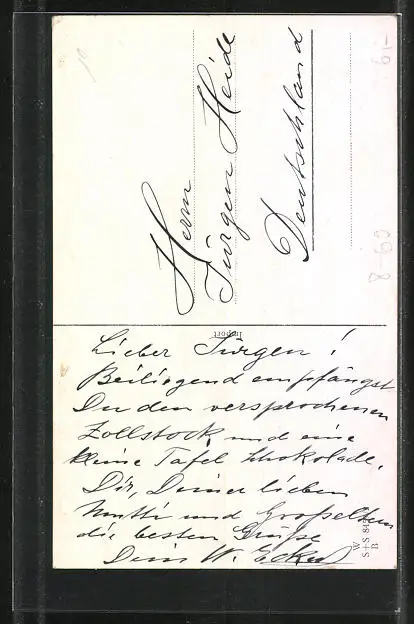 Herrn
Jürgen Heide
Deutschland
Import
Lieber Jürgen!
Beiliegend empfängst
Du den versprochenen
Zollstock und eine
kleine Tafel Schokolade.
Dir, Deiner lieben
Mutti und Großeltern
die besten Grüße
Dein W.
W
S+S
B